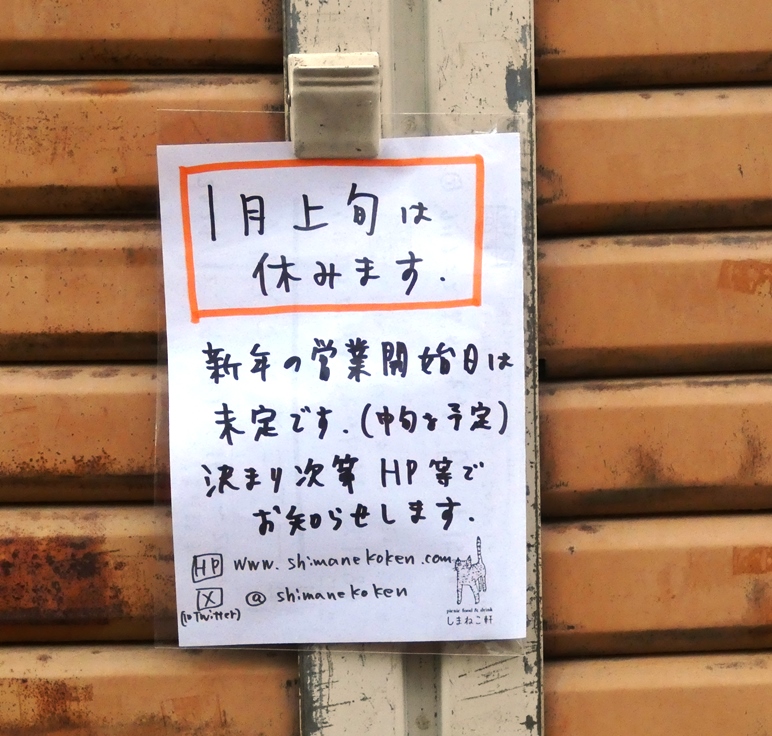 1月上旬は
休みます.
新年の営業開始日は
未定です.(中旬を予定)
決まり次第 HP等で
お知らせします.
HP www.shimanekoken.com
X @shimanekoken
(旧Twitter)
しまねこ軒